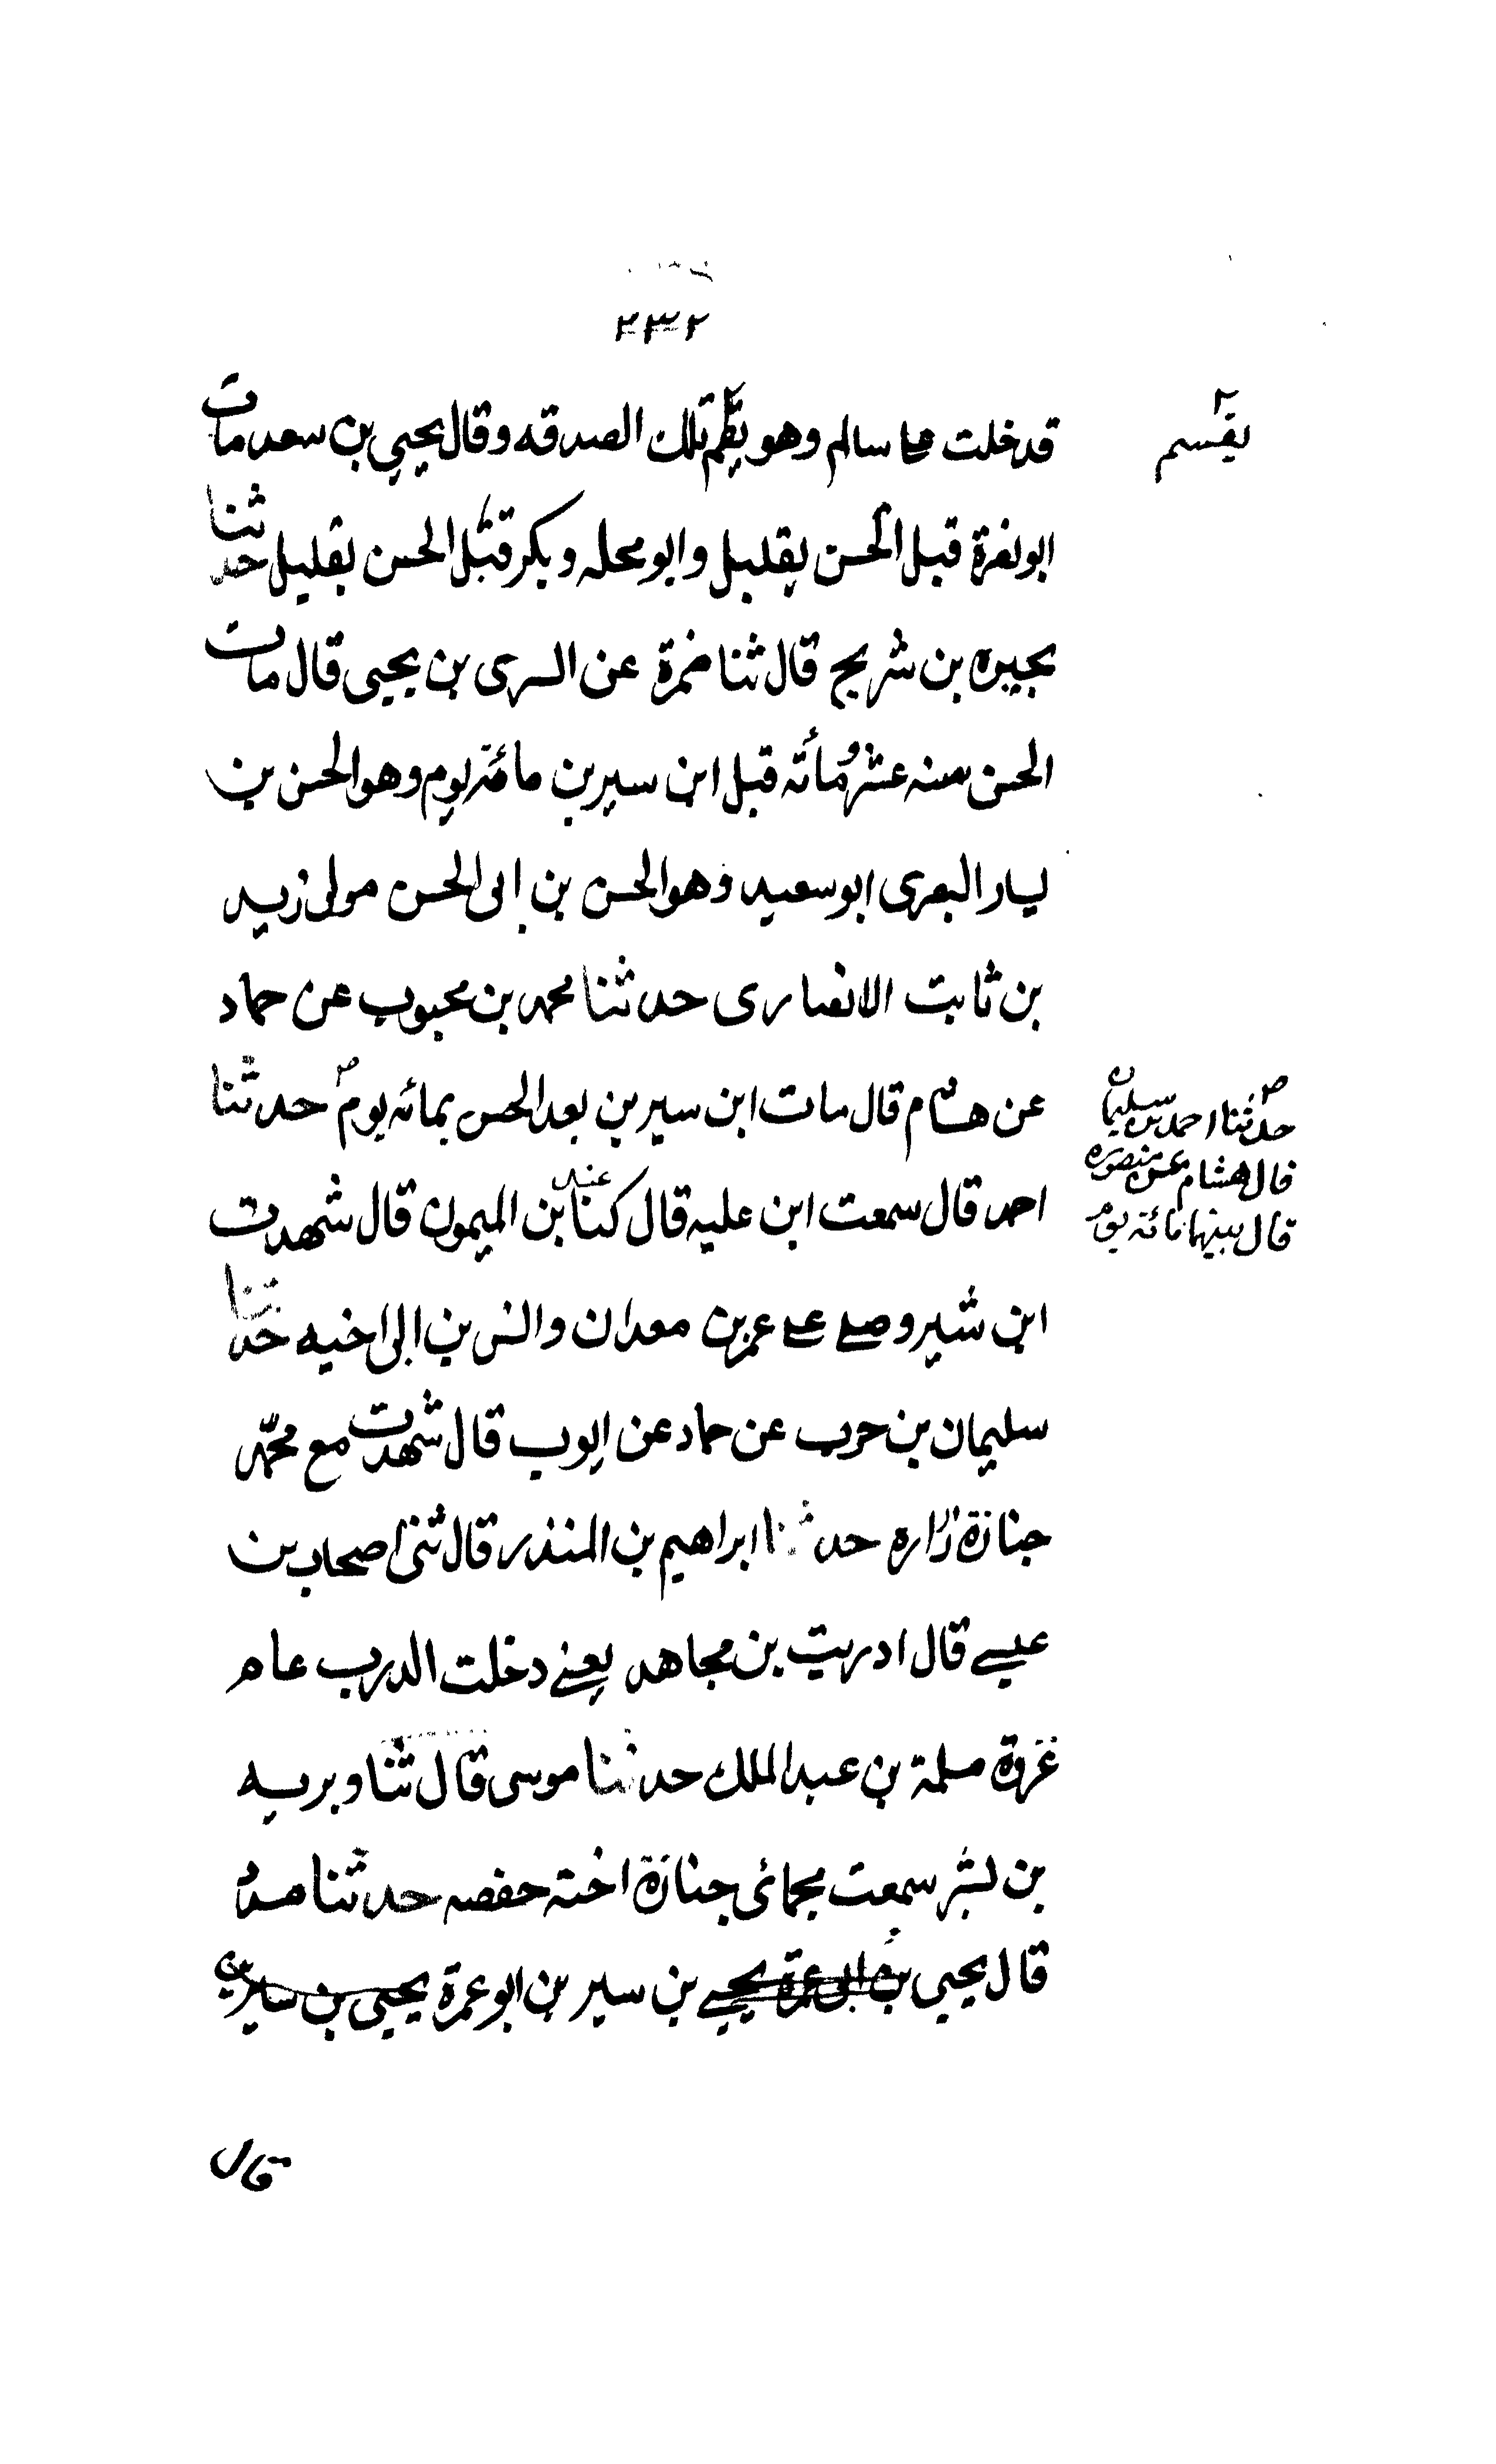 ٢٣٢
قدخلت على سالم وهو يظم تلك الصدقه وقال يحيى بن سعد مات
يقسم
ابو نضرة قبل الحسن بقليل وابو محله وبكر قبل الحسن بقليل حدثنا
بجيره بن شريح قال ثنا ضمرة عن السرى بن يحيى قال مات
الحسن سنه عشر ومائه قبل ابن سيرين مائة يوم وهو الحسن بن
يسار البصرى ابو سعيد وهو الحسن بن ابى الحسن مولى زيد
بن ثابت الانصارى حدثنا محمد بن محبوب عن حماد
عن هشام قال مات ابن سيرين بعد الحسن بمائه يوم حدثنا
حدثنا احمد بن سليمان
قال هشام عن منصوره
قال بينهما مائة يوم
احمد قال سمعت ابن عليه قال كنا عند بن الميمون قال شهدت
ابن شيرو صلے علے عمر بن معدان والنس بن ابى اخيه حدثنا
سليمان بن حرب عن حماد عن ايوب قال شهدت مع محمد
جنازة زراره حدثنا ابراهيم بن المنذر قال ثنى اصحاب بن
عيسے قال ادريت بن مجاهد يعنے دخلت الدرب عام
غزوة مسلمة بن عبد الملك حدثنا موسى قال ثنا وبريه
بن بشر سمعت مجمائى جنازة اخته حفصه حدثنا صد
قال يحيى بن ابى عمرة يحيے بن سيرين ابو عمرة يحيى بن سيرين
قال